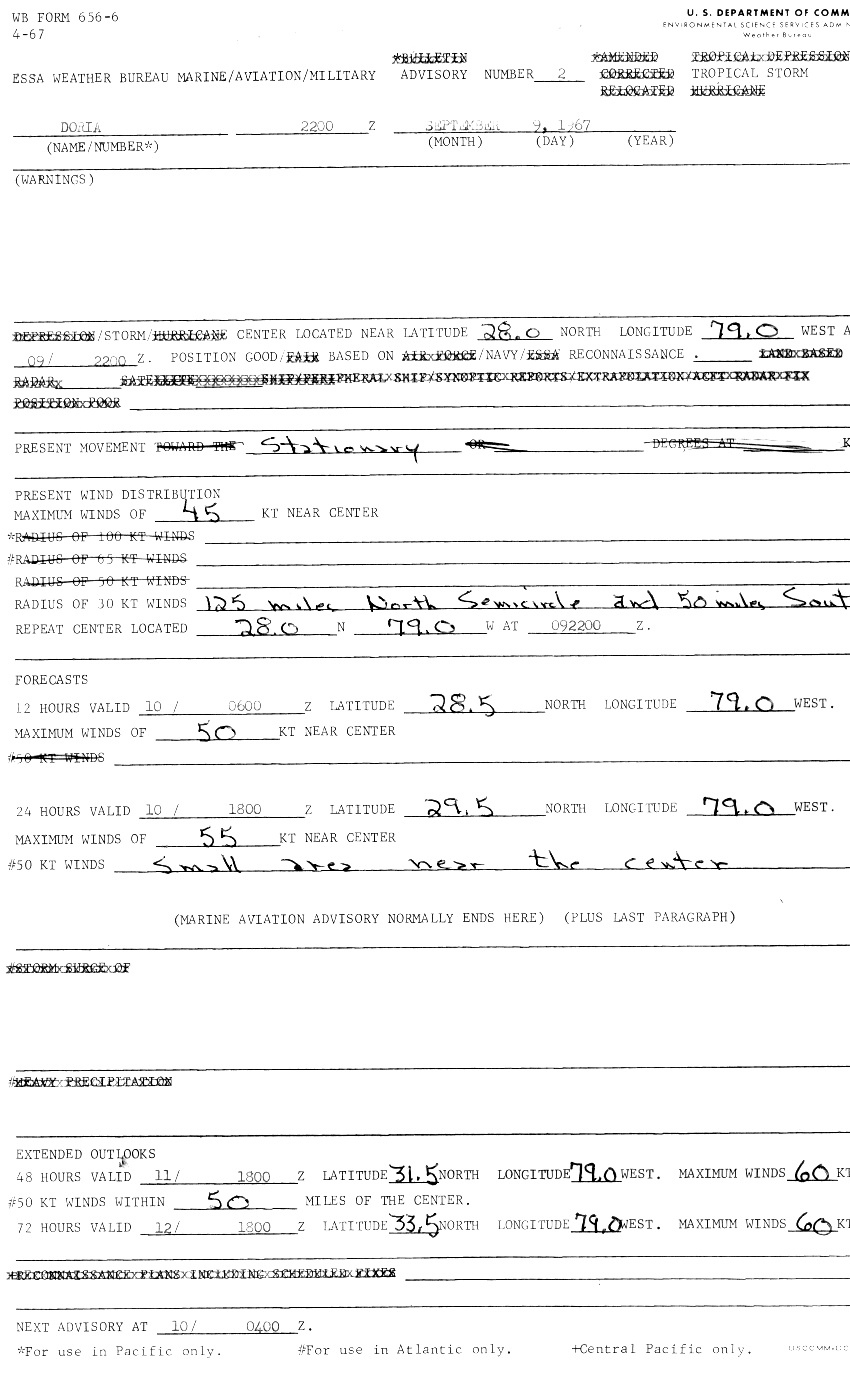 WB FORM 656-6
4-67
U. S. DEPARTMENT OF COMM
ENVIRONMENTAL SCIENCE SERVICES ADMIN
Weather Bureau
*BULLETIN *AMENDED TROPICAL DEPRESSION
ESSA WEATHER BUREAU MARINE/AVIATION/MILITARY ADVISORY NUMBER 2 CORRECTED TROPICAL STORM
RELOCATED HURRICANE
DORIA 2200 Z SEPTEMBER 9, 1967
(NAME/NUMBER*) (MONTH) (DAY) (YEAR)
(WARNINGS)
DEPRESSION/STORM/HURRICANE CENTER LOCATED NEAR LATITUDE 28.0 NORTH LONGITUDE 79.0 WEST A
09/ 2200 Z. POSITION GOOD/FAIR BASED ON AIR FORCE/NAVY/ESSA RECONNAISSANCE . LAND BASED
RADAR SATELLITE SHIP/PERIPHERAL SHIP/SYNOPTIC REPORTS/EXTRAPOLATION/ACFT RADAR FIX
POSITION POOR
PRESENT MOVEMENT TOWARD THE Stationary OR DEGREES AT K
PRESENT WIND DISTRIBUTION
MAXIMUM WINDS OF 45 KT NEAR CENTER
*RADIUS OF 100 KT WINDS
#RADIUS OF 65 KT WINDS
RADIUS OF 50 KT WINDS
RADIUS OF 30 KT WINDS 125 miles North Semicircle and 50 miles Sout
REPEAT CENTER LOCATED 28.0 N 79.0 W AT 092200 Z.
FORECASTS
12 HOURS VALID 10 / 0600 Z LATITUDE 28.5 NORTH LONGITUDE 79.0 WEST.
MAXIMUM WINDS OF 50 KT NEAR CENTER
#50 KT WINDS
24 HOURS VALID 10 / 1800 Z LATITUDE 29.5 NORTH LONGITUDE 79.0 WEST.
MAXIMUM WINDS OF 55 KT NEAR CENTER
#50 KT WINDS Small area near the center
(MARINE AVIATION ADVISORY NORMALLY ENDS HERE) (PLUS LAST PARAGRAPH)
#STORM SURGE OF
#HEAVY PRECIPITATION
EXTENDED OUTLOOKS
48 HOURS VALID 11/ 1800 Z LATITUDE 31.5 NORTH LONGITUDE 79.0 WEST. MAXIMUM WINDS 60 KT
#50 KT WINDS WITHIN 50 MILES OF THE CENTER.
72 HOURS VALID 12/ 1800 Z LATITUDE 33.5 NORTH LONGITUDE 79.0 WEST. MAXIMUM WINDS 60 KT
+RECONNAISSANCE PLANS INCLUDING SCHEDULED FIXES
NEXT ADVISORY AT 10/ 0400 Z.
*For use in Pacific only. #For use in Atlantic only. +Central Pacific only.